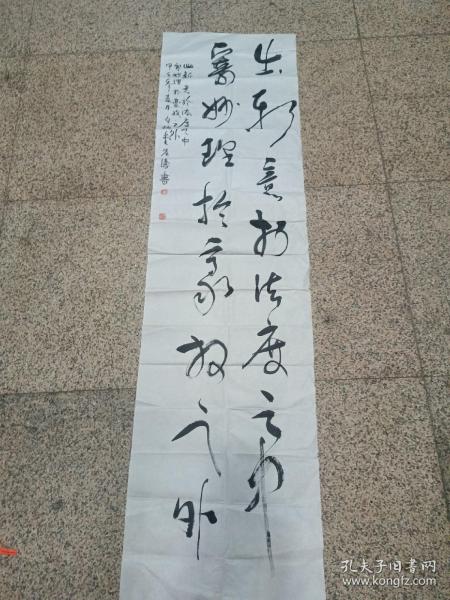 出新意於法度之中
寄妙理於豪放之外
出新意於法度之中
寄妙理於豪放之外
孔夫子旧书网
www.kongfz.com